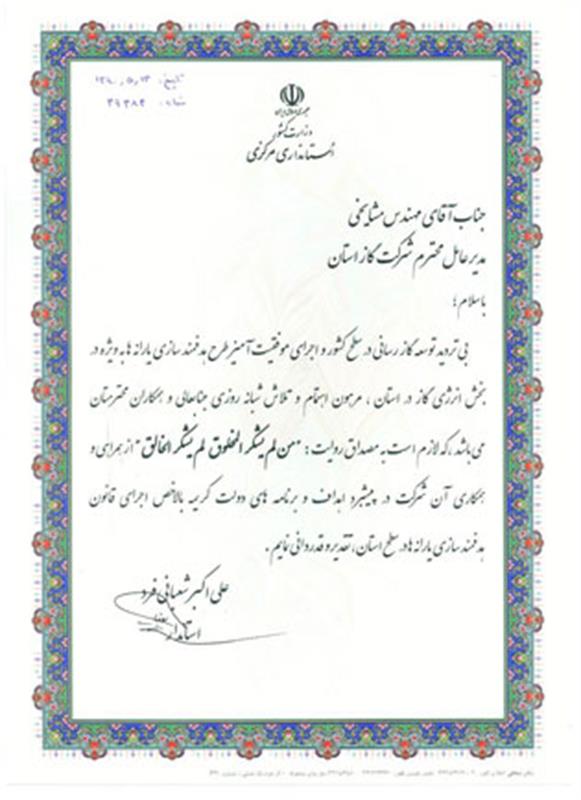 تاریخ: ۱۳۹۰٫۵٫۱۳
شماره: ۳۹۳۸۴
جمهوری اسلامی ایران
وزارت کشور
استانداری مرکزی
جناب آقای مهندس مشایخی
مدیر عامل محترم شرکت گاز استان
با سلام؛
بی تردید توسعه گاز رسانی در سطح کشور و اجرای موفقیت آمیز طرح هدفمند سازی یارانه ها به ویژه در
بخش انرژی گاز در استان ، مرهون اهتمام و تلاش شبانه روزی جنابعالی و همکاران محترمتان
می باشد ، که لازم است به مصداق روایت : "من لم یشکر المخلوق لم یشکر الخالق" از همراهی و
همکاری آن شرکت در پیشبرد اهداف و برنامه های دولت کریمه بالاخص اجرای قانون
هدفمند سازی یارانه ها در سطح استان، تقدیر و قدردانی نمایم .
علی اکبر شعبانی فرد
استاندار